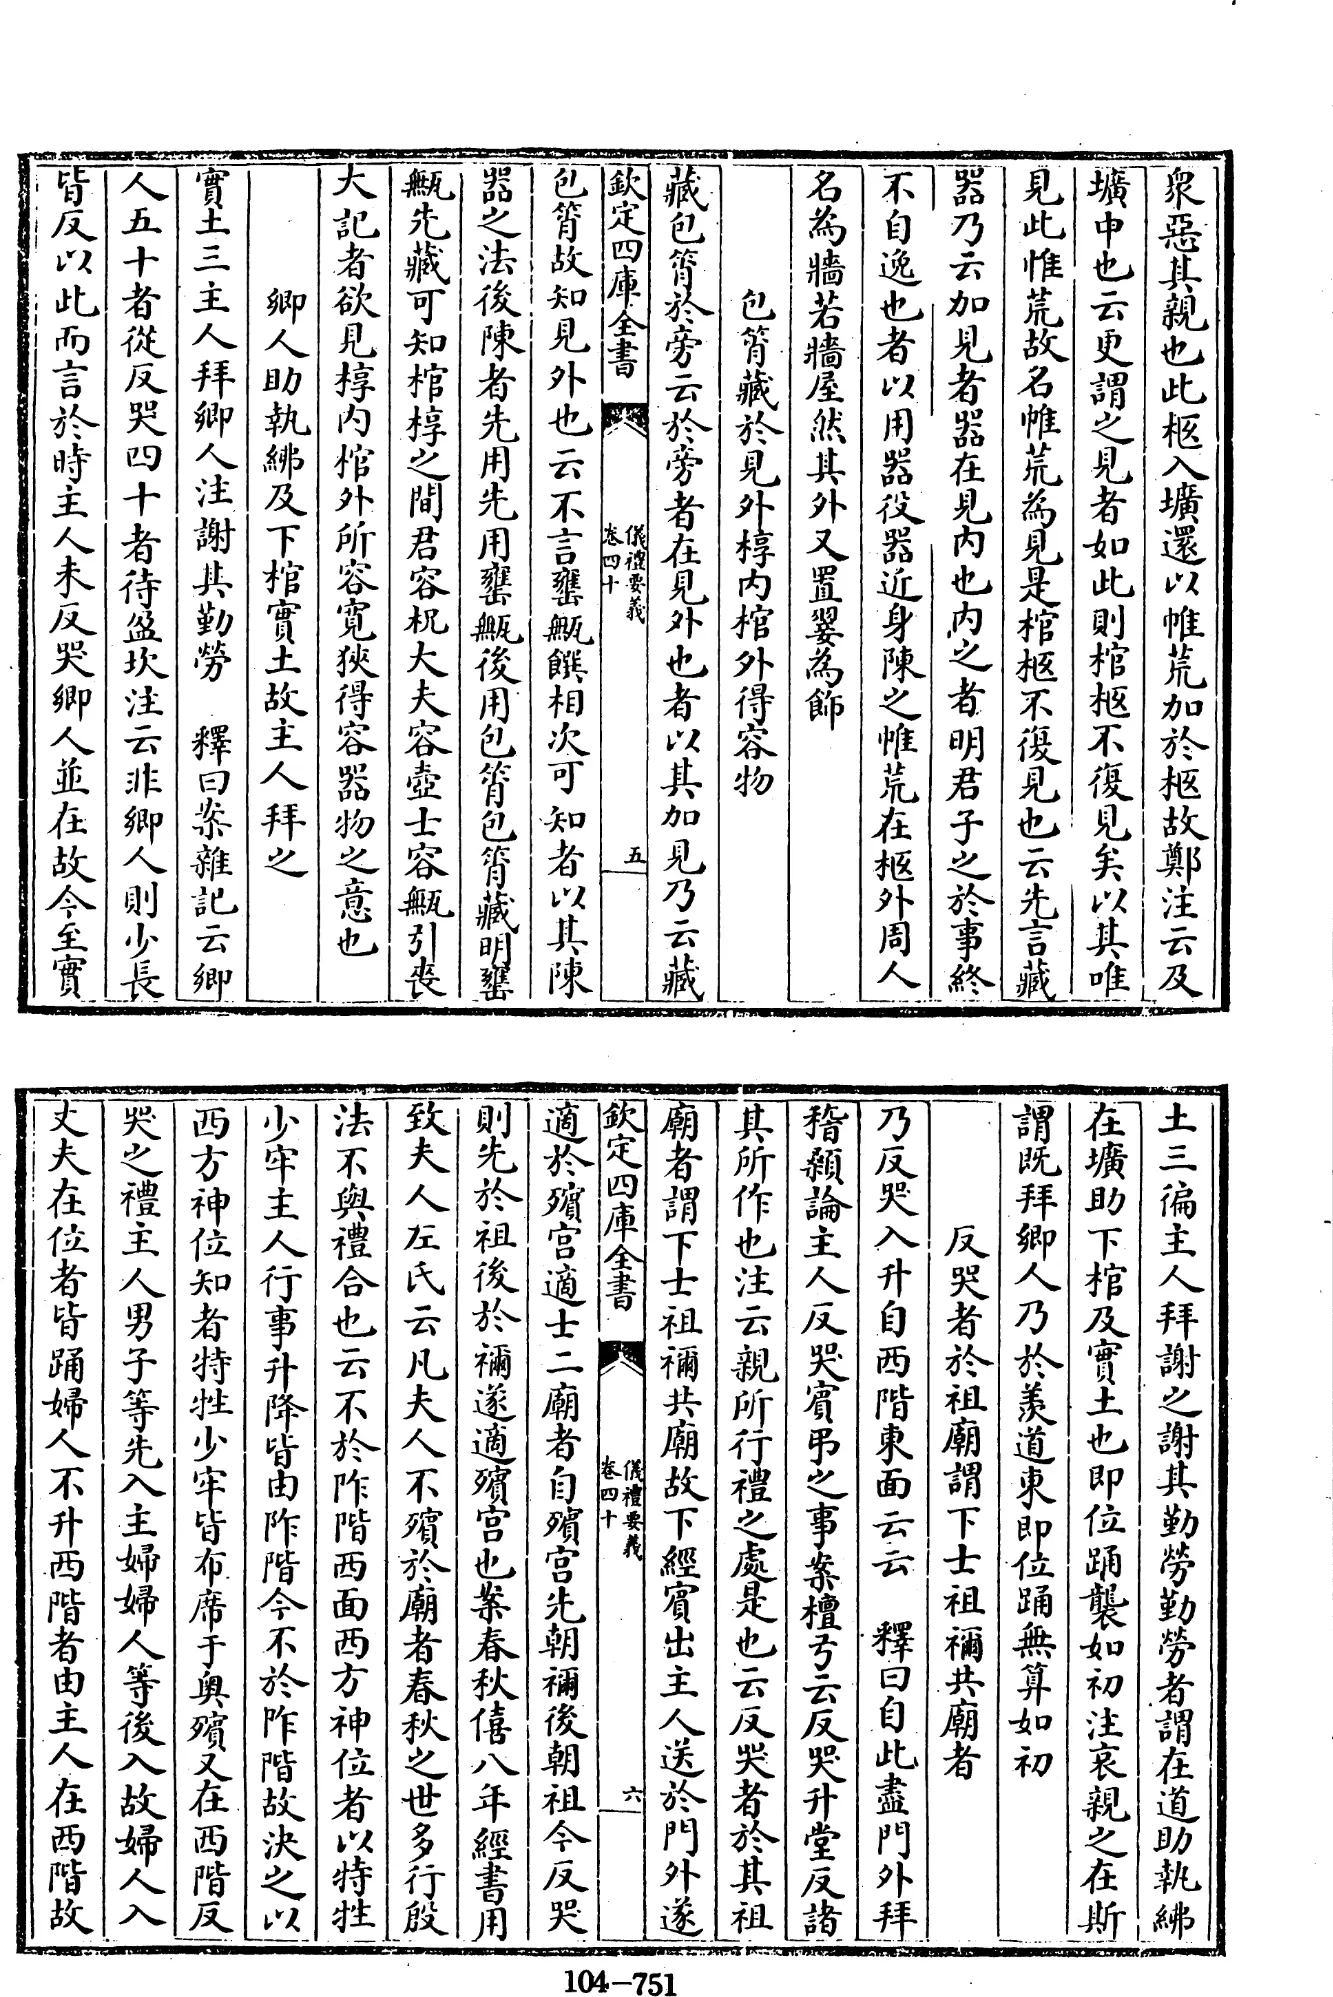 衆惡其親也此柩入壙還以帷荒加於柩故鄭注云及
壙中也云更謂之見者如此則棺柩不復見矣以其唯
見此帷荒故名帷荒為見是棺柩不復見也云先言藏
器乃云加見者器在見内也内之者明君子之於事終
不自逸也者以用器役器近身陳之帷荒在柩外周人
名為牆若牆屋然其外又置翣為飾
包筲藏於見外椁内棺外得容物
藏包筲於旁云於旁者在見外也者以其加見乃云藏
欽定四庫全書
儀禮要義
卷四十
五
包筲故知見外也云不言甕甒饌相次可知者以其陳
器之法後陳者先用先用甕甒後用包筲包筲藏明甕
甒先藏可知棺椁之間君容柷大夫容壺士容甒引喪
大記者欲見椁内棺外所容寛狹得容器物之意也
鄉人助執紼及下棺實土故主人拜之
實土三主人拜鄉人注謝其勤勞　釋曰案雜記云鄉
人五十者從反哭四十者待盈坎注云非鄉人則少長
皆反以此而言於時主人未反哭鄉人並在故今至實
土三徧主人拜謝之謝其勤勞勤勞者謂在道助執紼
在壙助下棺及實土也即位踊襲如初注哀親之在斯
謂既拜鄉人乃於羨道東即位踊無算如初
反哭者於祖廟謂下士祖禰共廟者
乃反哭入升自西階東面云云　釋曰自此盡門外拜
稽顙論主人反哭賓弔之事案檀弓云反哭升堂反諸
其所作也注云親所行禮之處是也云反哭者於其祖
廟者謂下士祖禰共廟故下經賓出主人送於門外遂
欽定四庫全書
儀禮要義
卷四十
六
適於殯宮適士二廟者自殯宮先朝禰後朝祖今反哭
則先於祖後於禰遂適殯宮也案春秋僖八年經書用
致夫人左氏云凡夫人不殯於廟者春秋之世多行殷
法不與禮合也云不於阼階西面西方神位者以特牲
少牢主人行事升降皆由阼階今不於阼階故決之以
西方神位知者特牲少牢皆布席于奥殯又在西階反
哭之禮主人男子等先入主婦婦人等後入故婦人入
丈夫在位者皆踊婦人不升西階者由主人在西階故
104-751